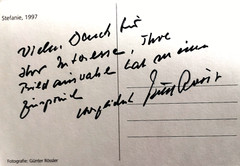 Stefanie, 1997
Vielen Dank für
Ihr Interesse, Ihre
Bildauswahl hat meinen
Zuspruch
Fotografie: Günter Rössler